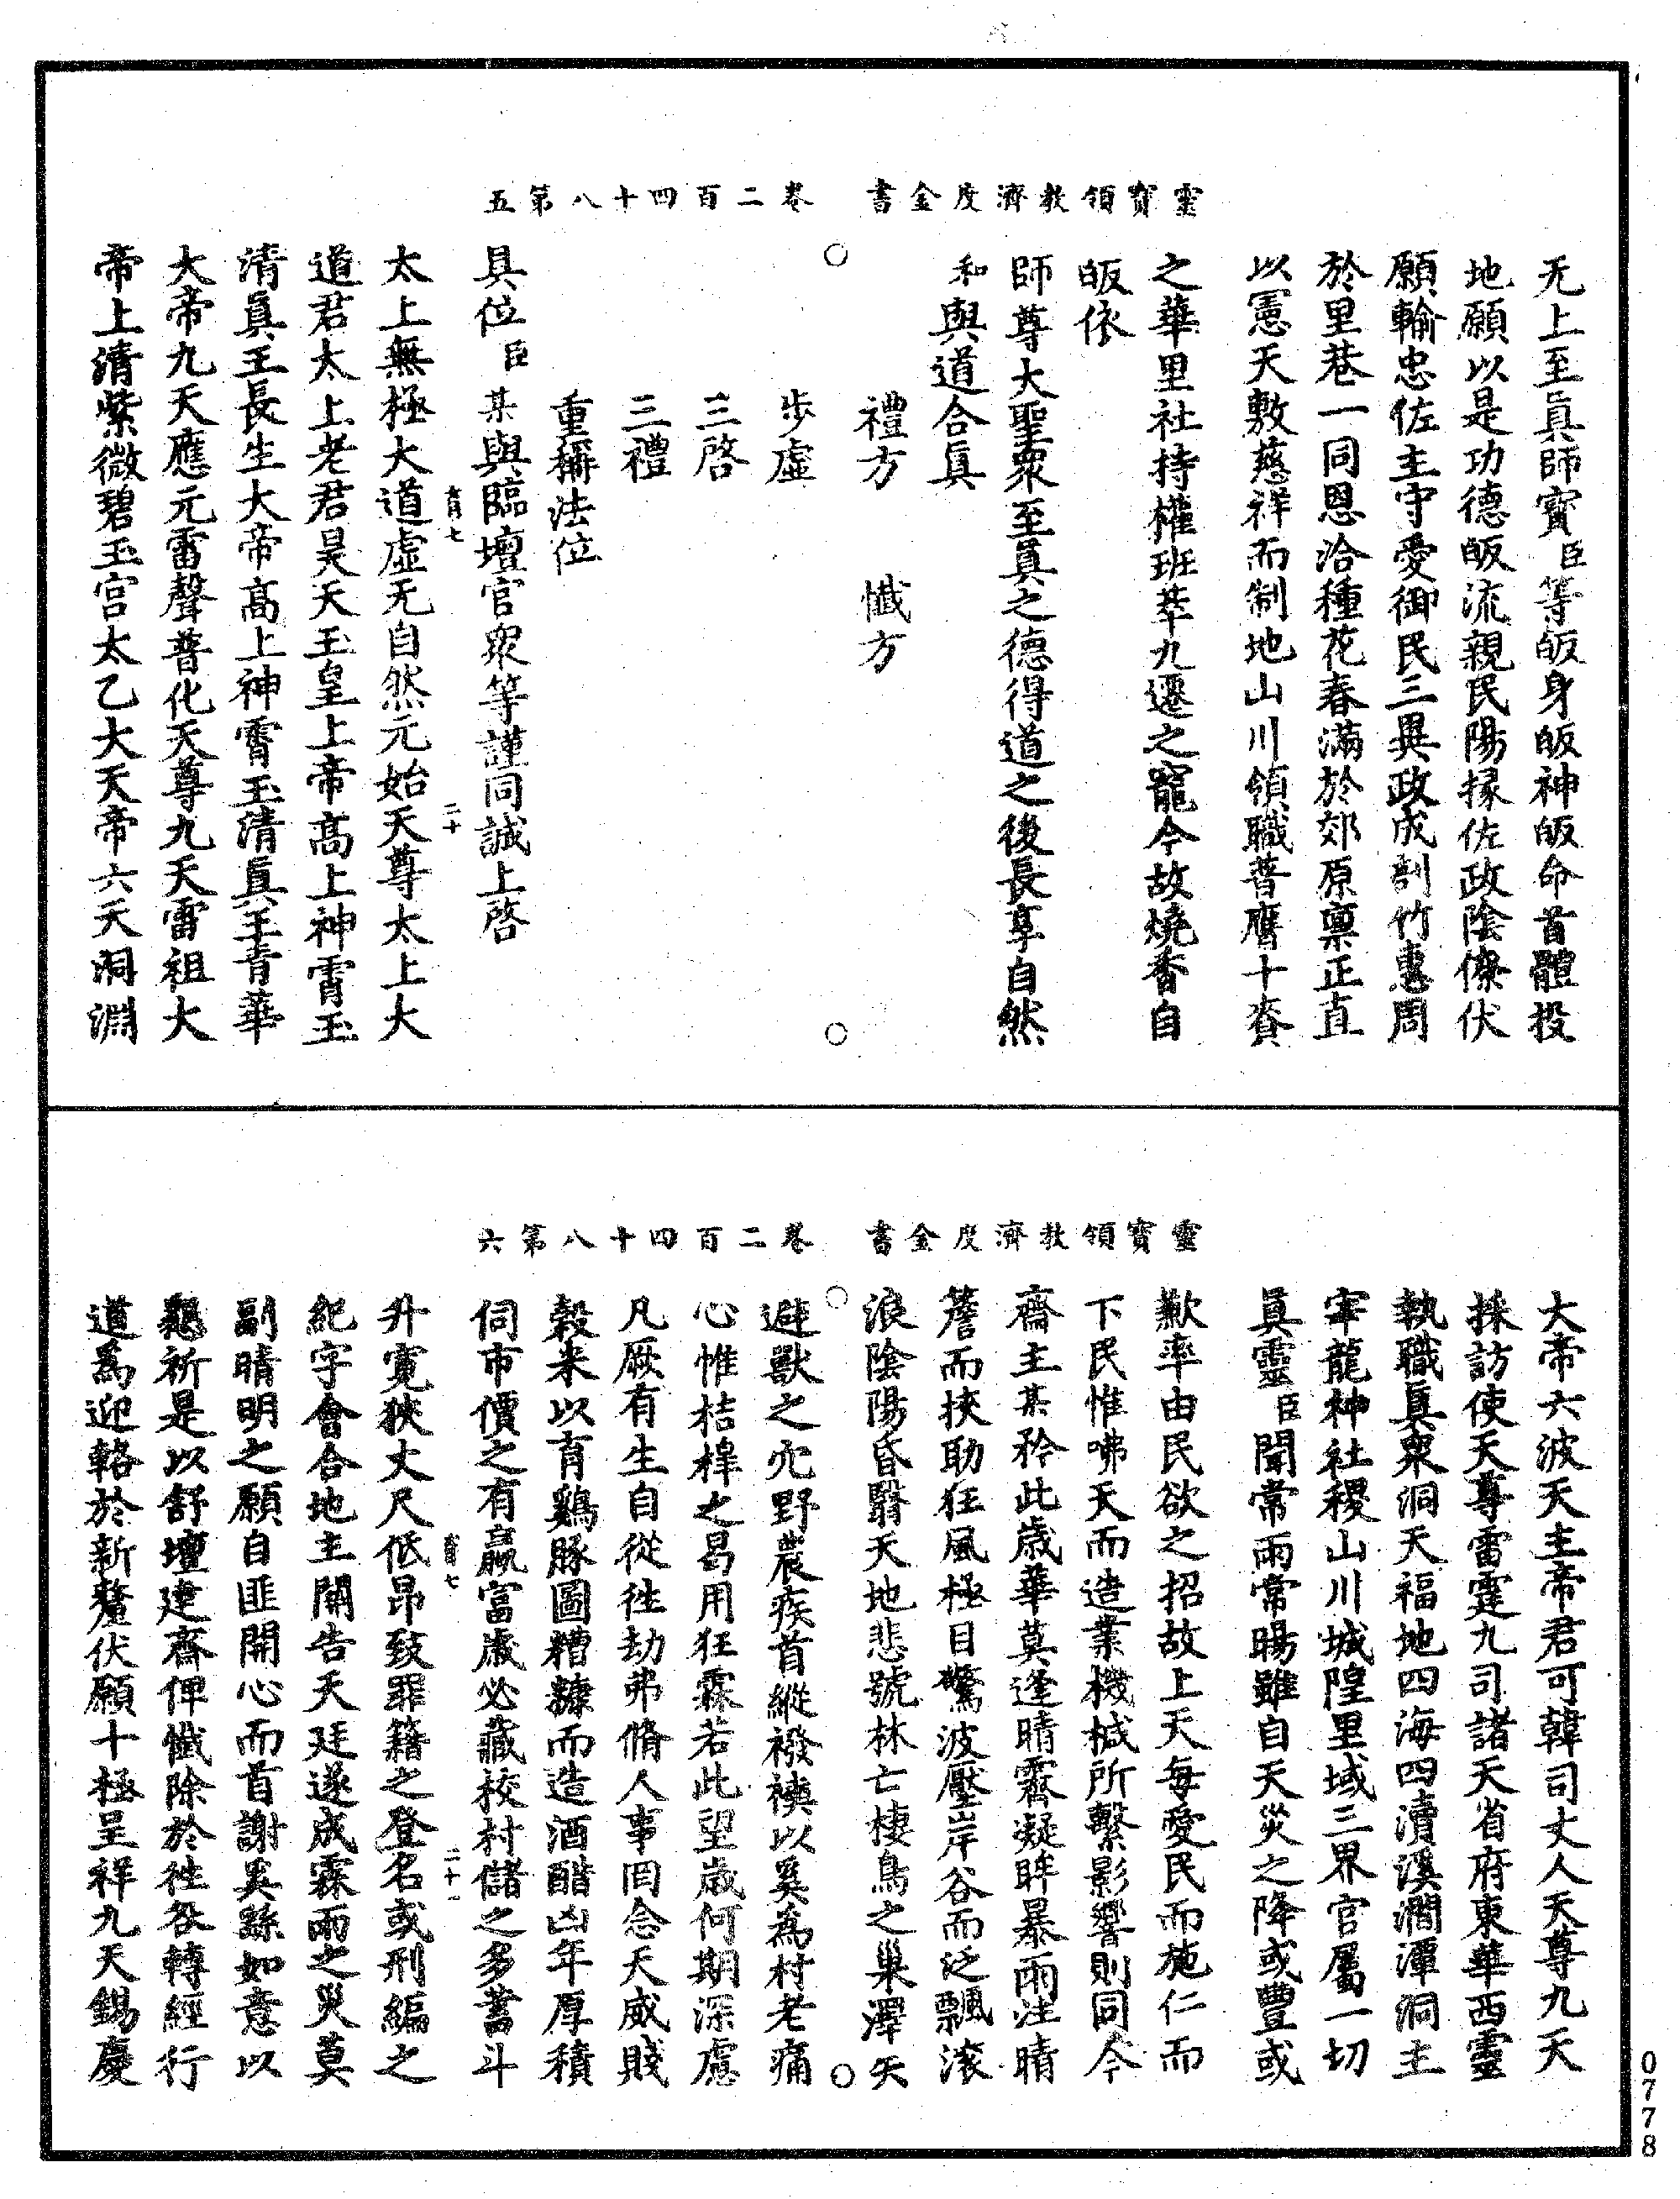 靈寶領教濟度金書　卷二百四十八第五
无上至眞師寶臣等皈身皈神皈命首體投
地願以是功德皈流親民陽掾佐政陰僚伏
願輸忠佐主守愛御民三異政成剖竹惠周
於里巷一同恩洽種花春滿於郊原稟正直
以憲天敷慈祥而制地山川領職普膺十賚
之華里社持權班萃九遷之寵今故燒香自
皈依
師尊大聖衆至眞之德得道之後長享自然
和與道合眞
禮方　懺方
步虛
三啓
三禮
重稱法位
具位臣某與臨壇官衆等謹同誠上啓
太上無極大道虛无自然元始天尊太上大
道君太上老君昊天玉皇上帝高上神霄玉
清眞王長生大帝高上神霄玉清眞王青華
大帝九天應元雷聲普化天尊九天雷祖大
帝上清紫微碧玉宫太乙大天帝六天洞淵
靈寶領教濟度金書　卷二百四十八第六
大帝六波天主帝君可韓司丈人天尊九天
採訪使天尊雷霆九司諸天省府東華西靈
執職眞衆洞天福地四海四瀆溪澗潭洞主
宰龍神社稷山川城隍里域三界官屬一切
眞靈臣聞常雨常暘雖自天災之降或豐或
歉率由民欲之招故上天每愛民而施仁而
下民惟咈天而造業機械所繫影響則同今
齋主某矜此歲華莫逢晴霽凝眸暴雨泩晴
簷而挾助狂風極目驚波壓岸谷而泛飄滚
浪陰陽昏翳天地悲號林亡棲鳥之巢澤矢
避獸之穴野農疾首縱襏襫以奚爲村老痛
心惟桔槹之曷用狂霖若此望歲何期深慮
凡厥有生自從徃劫弗脩人事罔念天威賤
穀米以育鷄豚圖糟糠而造酒醋凶年厚積
伺市價之有贏富歲必藏校村儲之多蓄斗
升寛狹丈尺低昂致罪籍之登名或刑編之
紀字會合地主關告天廷遂成霖雨之災莫
副晴明之願自匪開心而首謝奚繇如意以
懇祈是以舒壇建齋俾懺除於徃咎轉經行
道爲迎輅於新釐伏願十極呈祥九天錫慶
0778